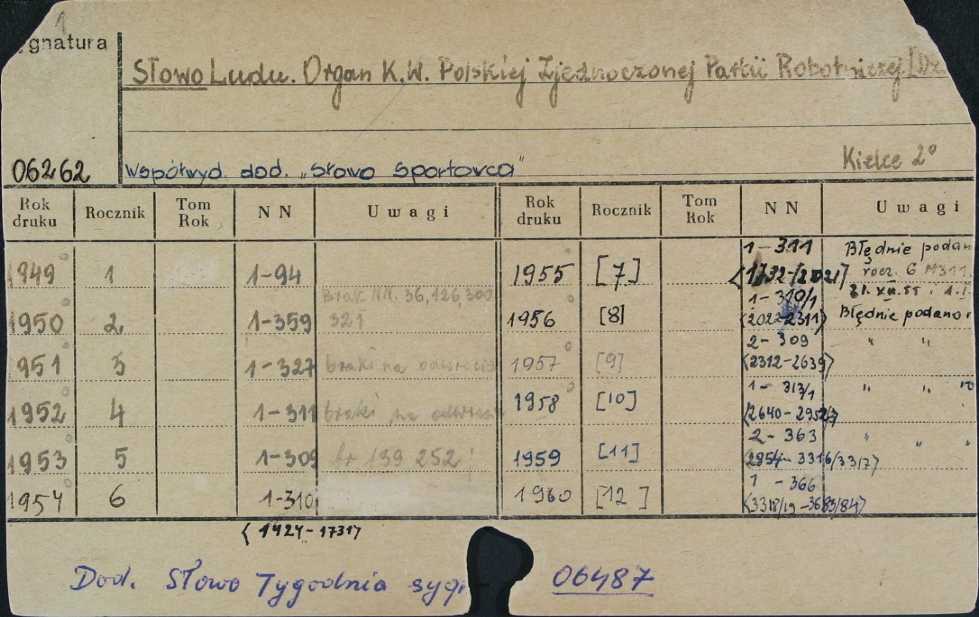 1
ygnatura
Słowo Ludu. Organ K.W. Polskiej Zjednoczonej Partii Robotniczej. [Dz
06262 Współwyd. dod. „Słowo Sportowca" Kielce 2°
Rok druku Rocznik Tom Rok NN Uwagi Rok druku Rocznik Tom Rok NN Uwagi
1949 1 1-94 1955 [7] 1-311 <1732-/2021> Błędnie podan rocz. 6 N311 31.XII.55 i 1.I.
1950 2 1-359 Brak NN. 36,126,300 321 1956 [8] 1-310/1 <2022-2311> Błędnie podano
1951 3 1-327 braki na odwrocie 1957 [9] 2-309 <2312-2639> " "
1952 4 1-311 braki na odwrocie 1958 [10] 1-313/1 " "
1953 5 1-309 139 252 1959 [11] 2-363 " " "
1954 6 1-310 1960 [12] 1-366
<1424-1731>
Dod. Słowo Tygodnia syg 06487